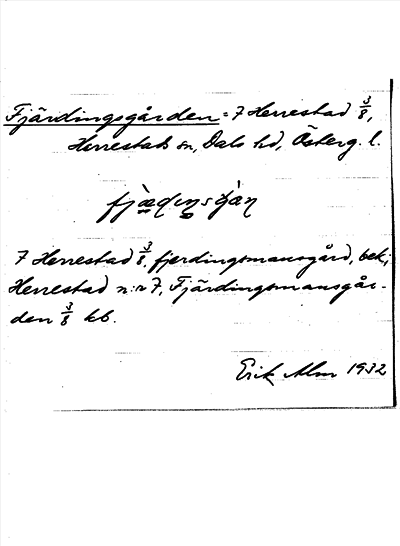 Fjärdingsgården = 7 Herrestad 3/8,
Herrestads sn, Dals hd, Österg. l.
7 Herrestad 3/8, fjerdingsmansgård, bek;
Herrestad n:r 7, Fjärdingsmansgår-
den 3/8 kb.
Erik Alm 1932